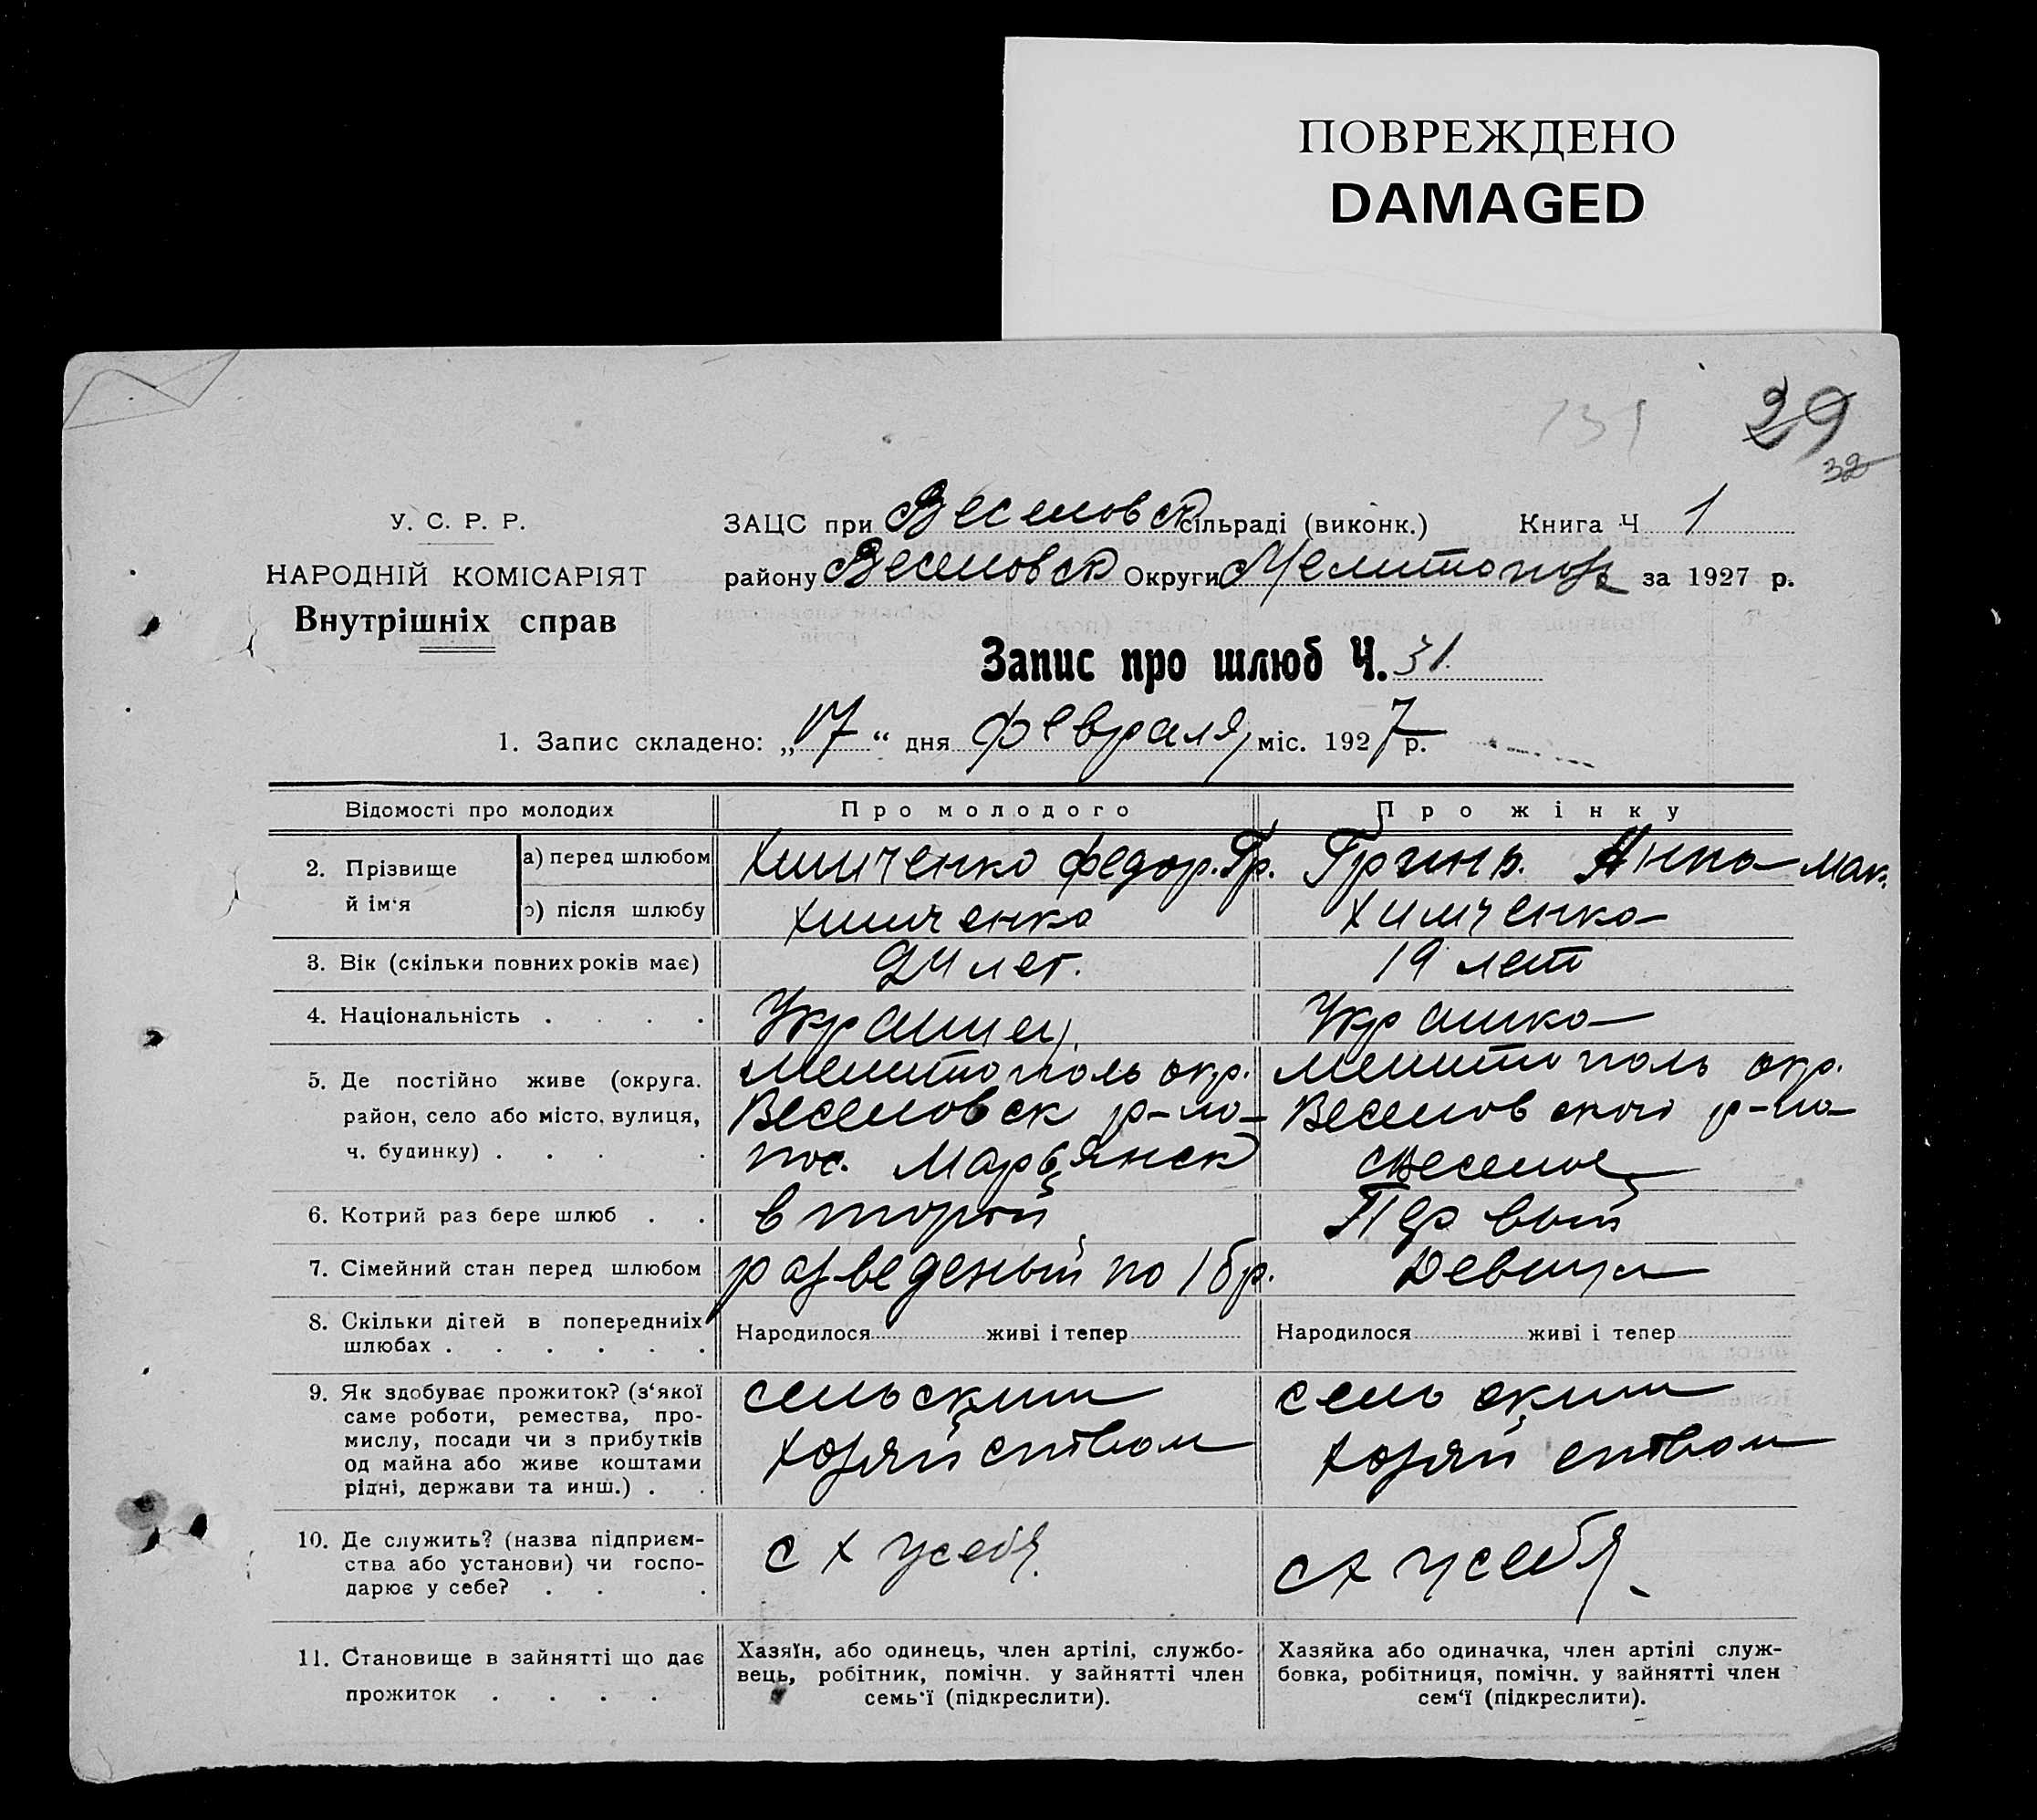 ПОВРЕЖДЕНО
DAMAGED
131
29
32
У. С. Р. Р.
НАРОДНІЙ КОМІСАРІЯТ
Внутрішніх справ
ЗАЦС при Веселовск сільраді (виконк.) Книга Ч 1
району Веселовск Округи Мелитопол за 1927 р.
Запис про шлюб Ч. 31.
1. Запис складено: „17“ дня февраля міс. 1927 р.
Відомості про молодих Про молодого Про жінку
2. Прізвище й ім‘я а) перед шлюбом Химченко Федор. Гр. Гринь. Анна Мак.
б) після шлюбу Химченко Химченко
3. Вік (скільки повних років має) 24 лет. 19 лет
4. Національність . . . . Украинец. Украинка
5. Де постійно живе (округа. Мелитополь окр. Мелитополь окр.
район, село або місто, вулиця, Веселовск р-на Веселовского р-на
ч. будинку) . . . . пос. Марьянск с Веселое
6. Котрий раз бере шлюб . . второй Первый
7. Сімейний стан перед шлюбом разведеный по 1 бр. Девица
8. Скільки дітей в попередниіх
шлюбах . . . . . . Народилося живі і тепер Народилося живі і тепер
9. Як здобуває прожиток? (з‘якої сельским сельским
саме роботи, ремества, про-
мислу, посади чи з прибутків хозяйством хозяйством
од майна або живе коштами
рідні, держави та инш.) . .
10. Де служить? (назва підприєм-
ства або установи) чи госпо- с х у себя с х у себя
дарює у себе? . . .
11. Становище в зайнятті що дає Хазяїн, або одинець, член артілі, службо- Хазяйка або одиначка, член артілі служ-
прожиток . . . . вець, робітник, помічн. у зайнятті член бовка, робітниця, помічн. у зайнятті член
семь‘ї (підкреслити). сем‘ї (підкреслити).